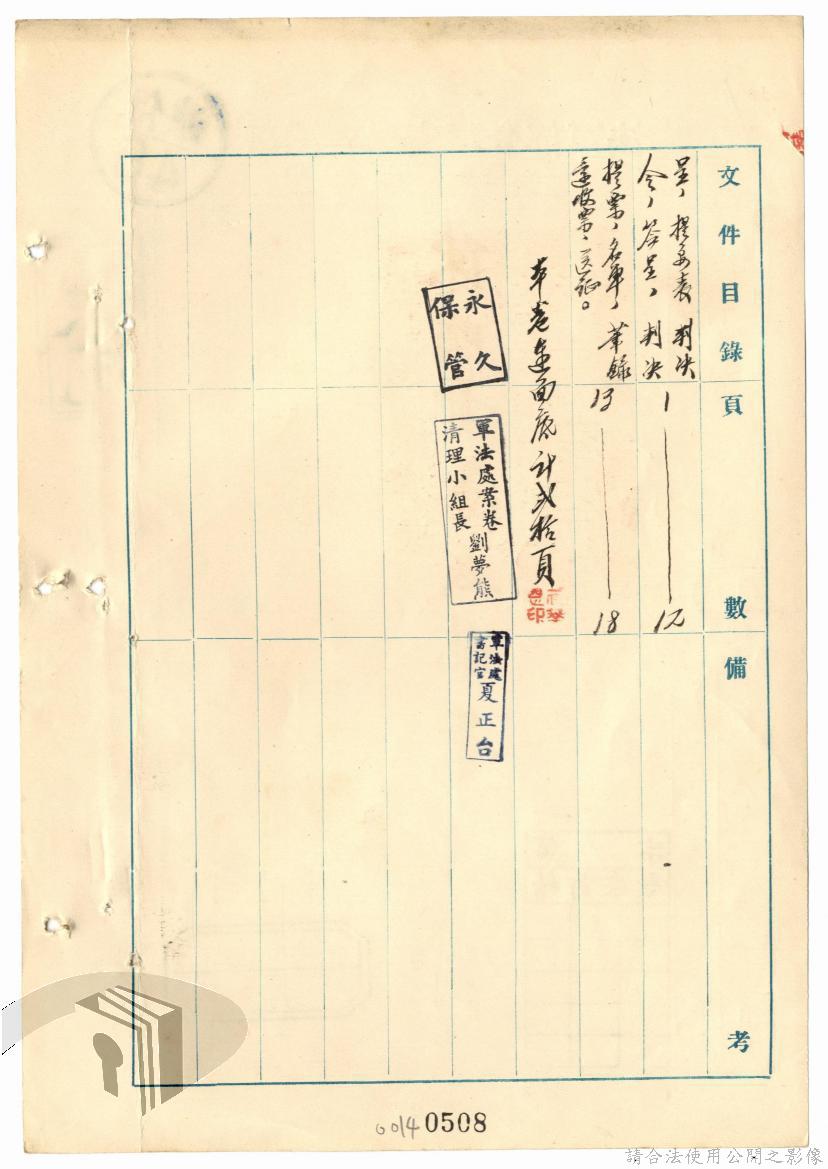 文件目錄
頁數
備考
呈、提要表 判決
令、簽呈、判決 1 — 12
提票、名單、筆錄 13 — 18
還收票、送証。
本卷連面底計弍拾頁
永久
保管
軍法處案卷
清理小組長 劉夢熊
軍法處
書記官 夏正台
0014 0508
請合法使用公開之影像